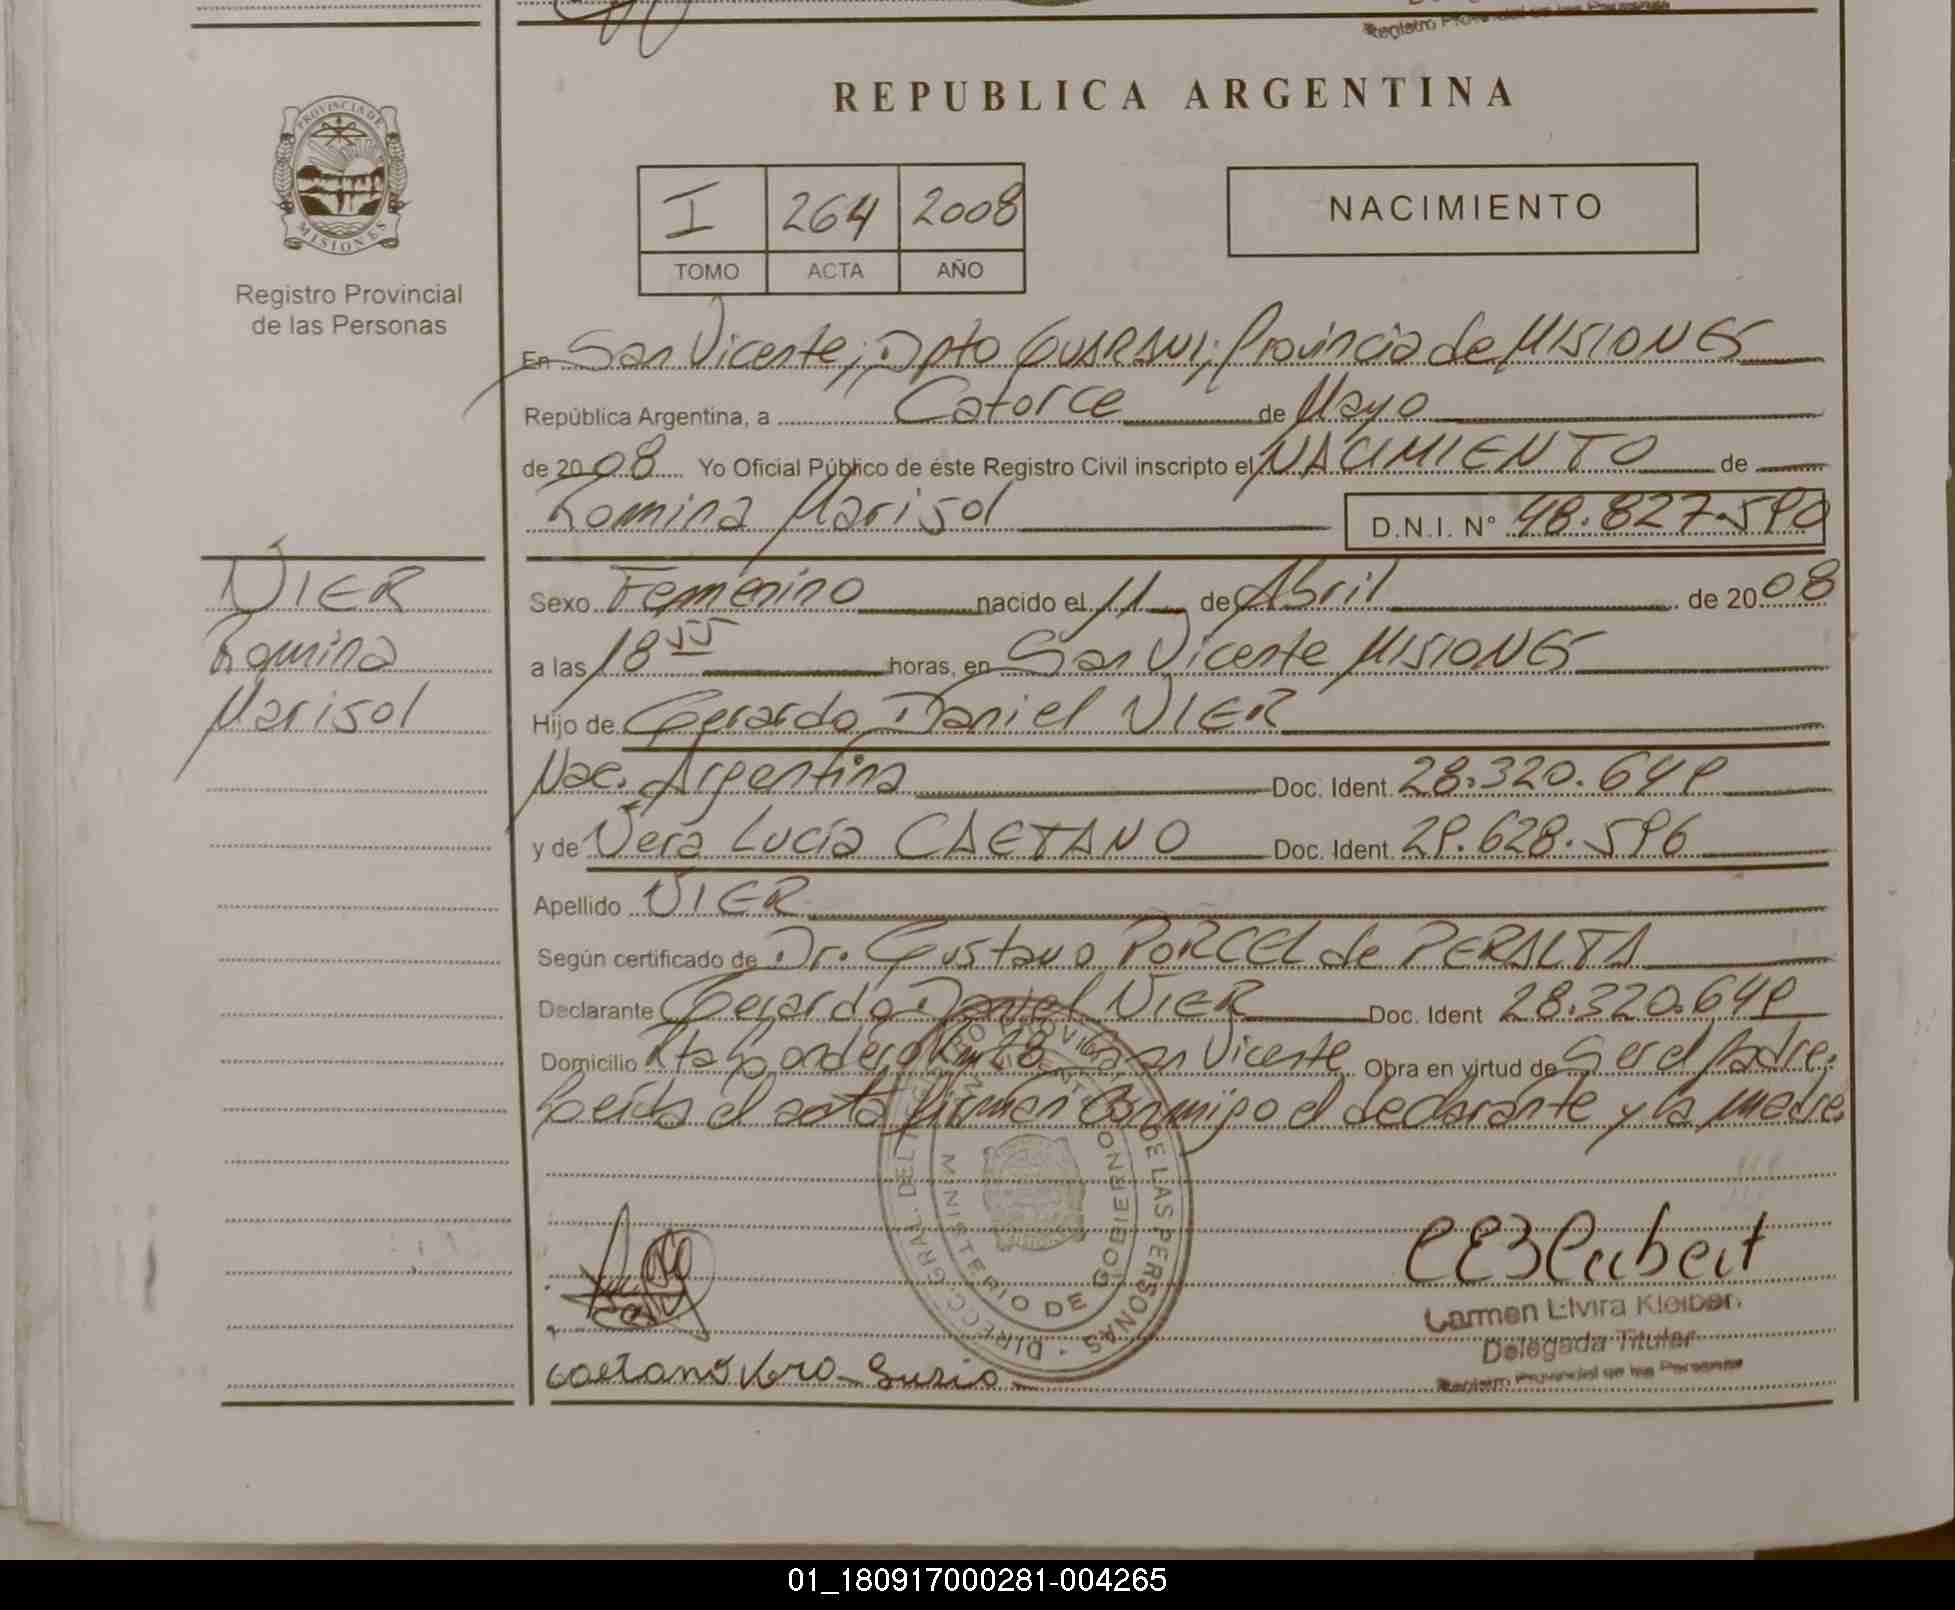 REPUBLICA ARGENTINA
PROVINCIA DE
MISIONES
Registro Provincial
de las Personas
I 264 2008
TOMO ACTA AÑO
NACIMIENTO
En San Vicente, Dpto GUARANI, Provincia de MISIONES
República Argentina, a Catorce de Mayo
de 2008 Yo Oficial Público de éste Registro Civil inscripto el NACIMIENTO de
Romina Marisol D.N.I. N° 48.827.590
VIER
Romina
Marisol
Sexo Femenino nacido el 11 de Abril de 2008
a las 18 55 horas, en San Vicente MISIONES
Hijo de Gerardo Daniel VIER
Nac. Argentina Doc. Ident. 28.320.649
y de Vera Lucia CAETANO Doc. Ident. 29.628.596
Apellido VIER
Según certificado de Dr. Gustavo PORCEL de PERALTA
Declarante Gerardo Daniel VIER Doc. Ident 28.320.649
Domicilio Km 28 San Vicente Obra en virtud de Ser el padre.
Leída el acta firman conmigo el declarante y la madre
DE LAS PERSONAS
MINISTERIO DE GOBIERNO
DIRECC. GRAL. DEL
Carmen Elvira Kleiber
Delegada Titular
Registro Provincial de las Personas
Caetano Vera Lucia
01_180917000281-004265